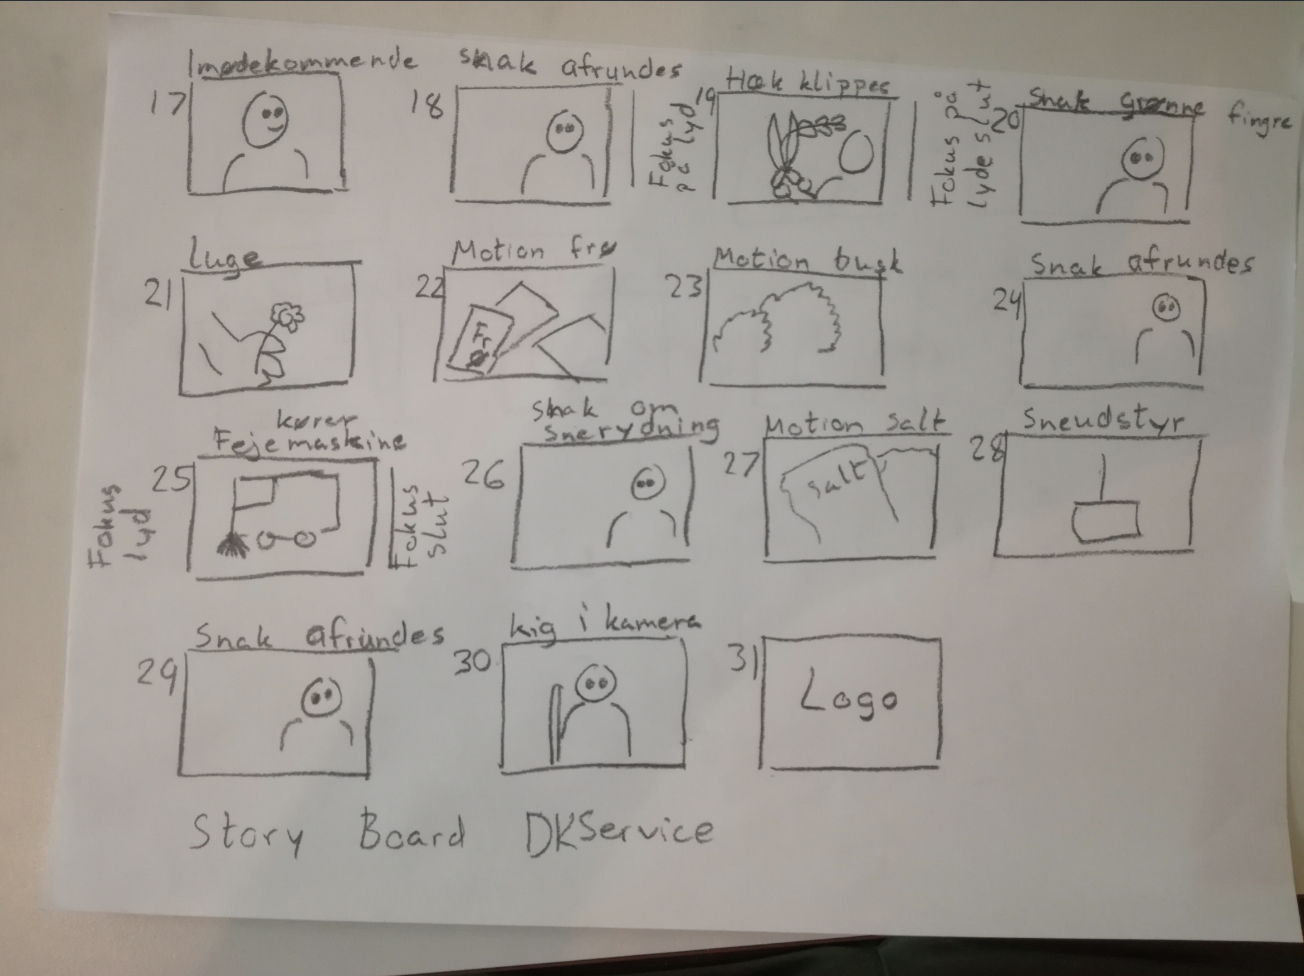 Imødekommende
17
Snak afrundes
18
Fokus
på lyd
Hæk klippes
19
Fokus på
lyde slut
Snak Grønne fingre
20
Luge
21
Motion frø
22
Frø
Motion busk
23
Snak afrundes
24
Fokus
lyd
kører
Fejemaskine
25
Fokus
slut
Snak om
Snerydning
26
Motion Salt
27
Salt
Sneudstyr
28
Snak afrundes
29
kig i kamera
30
31
Logo
Story Board DKService